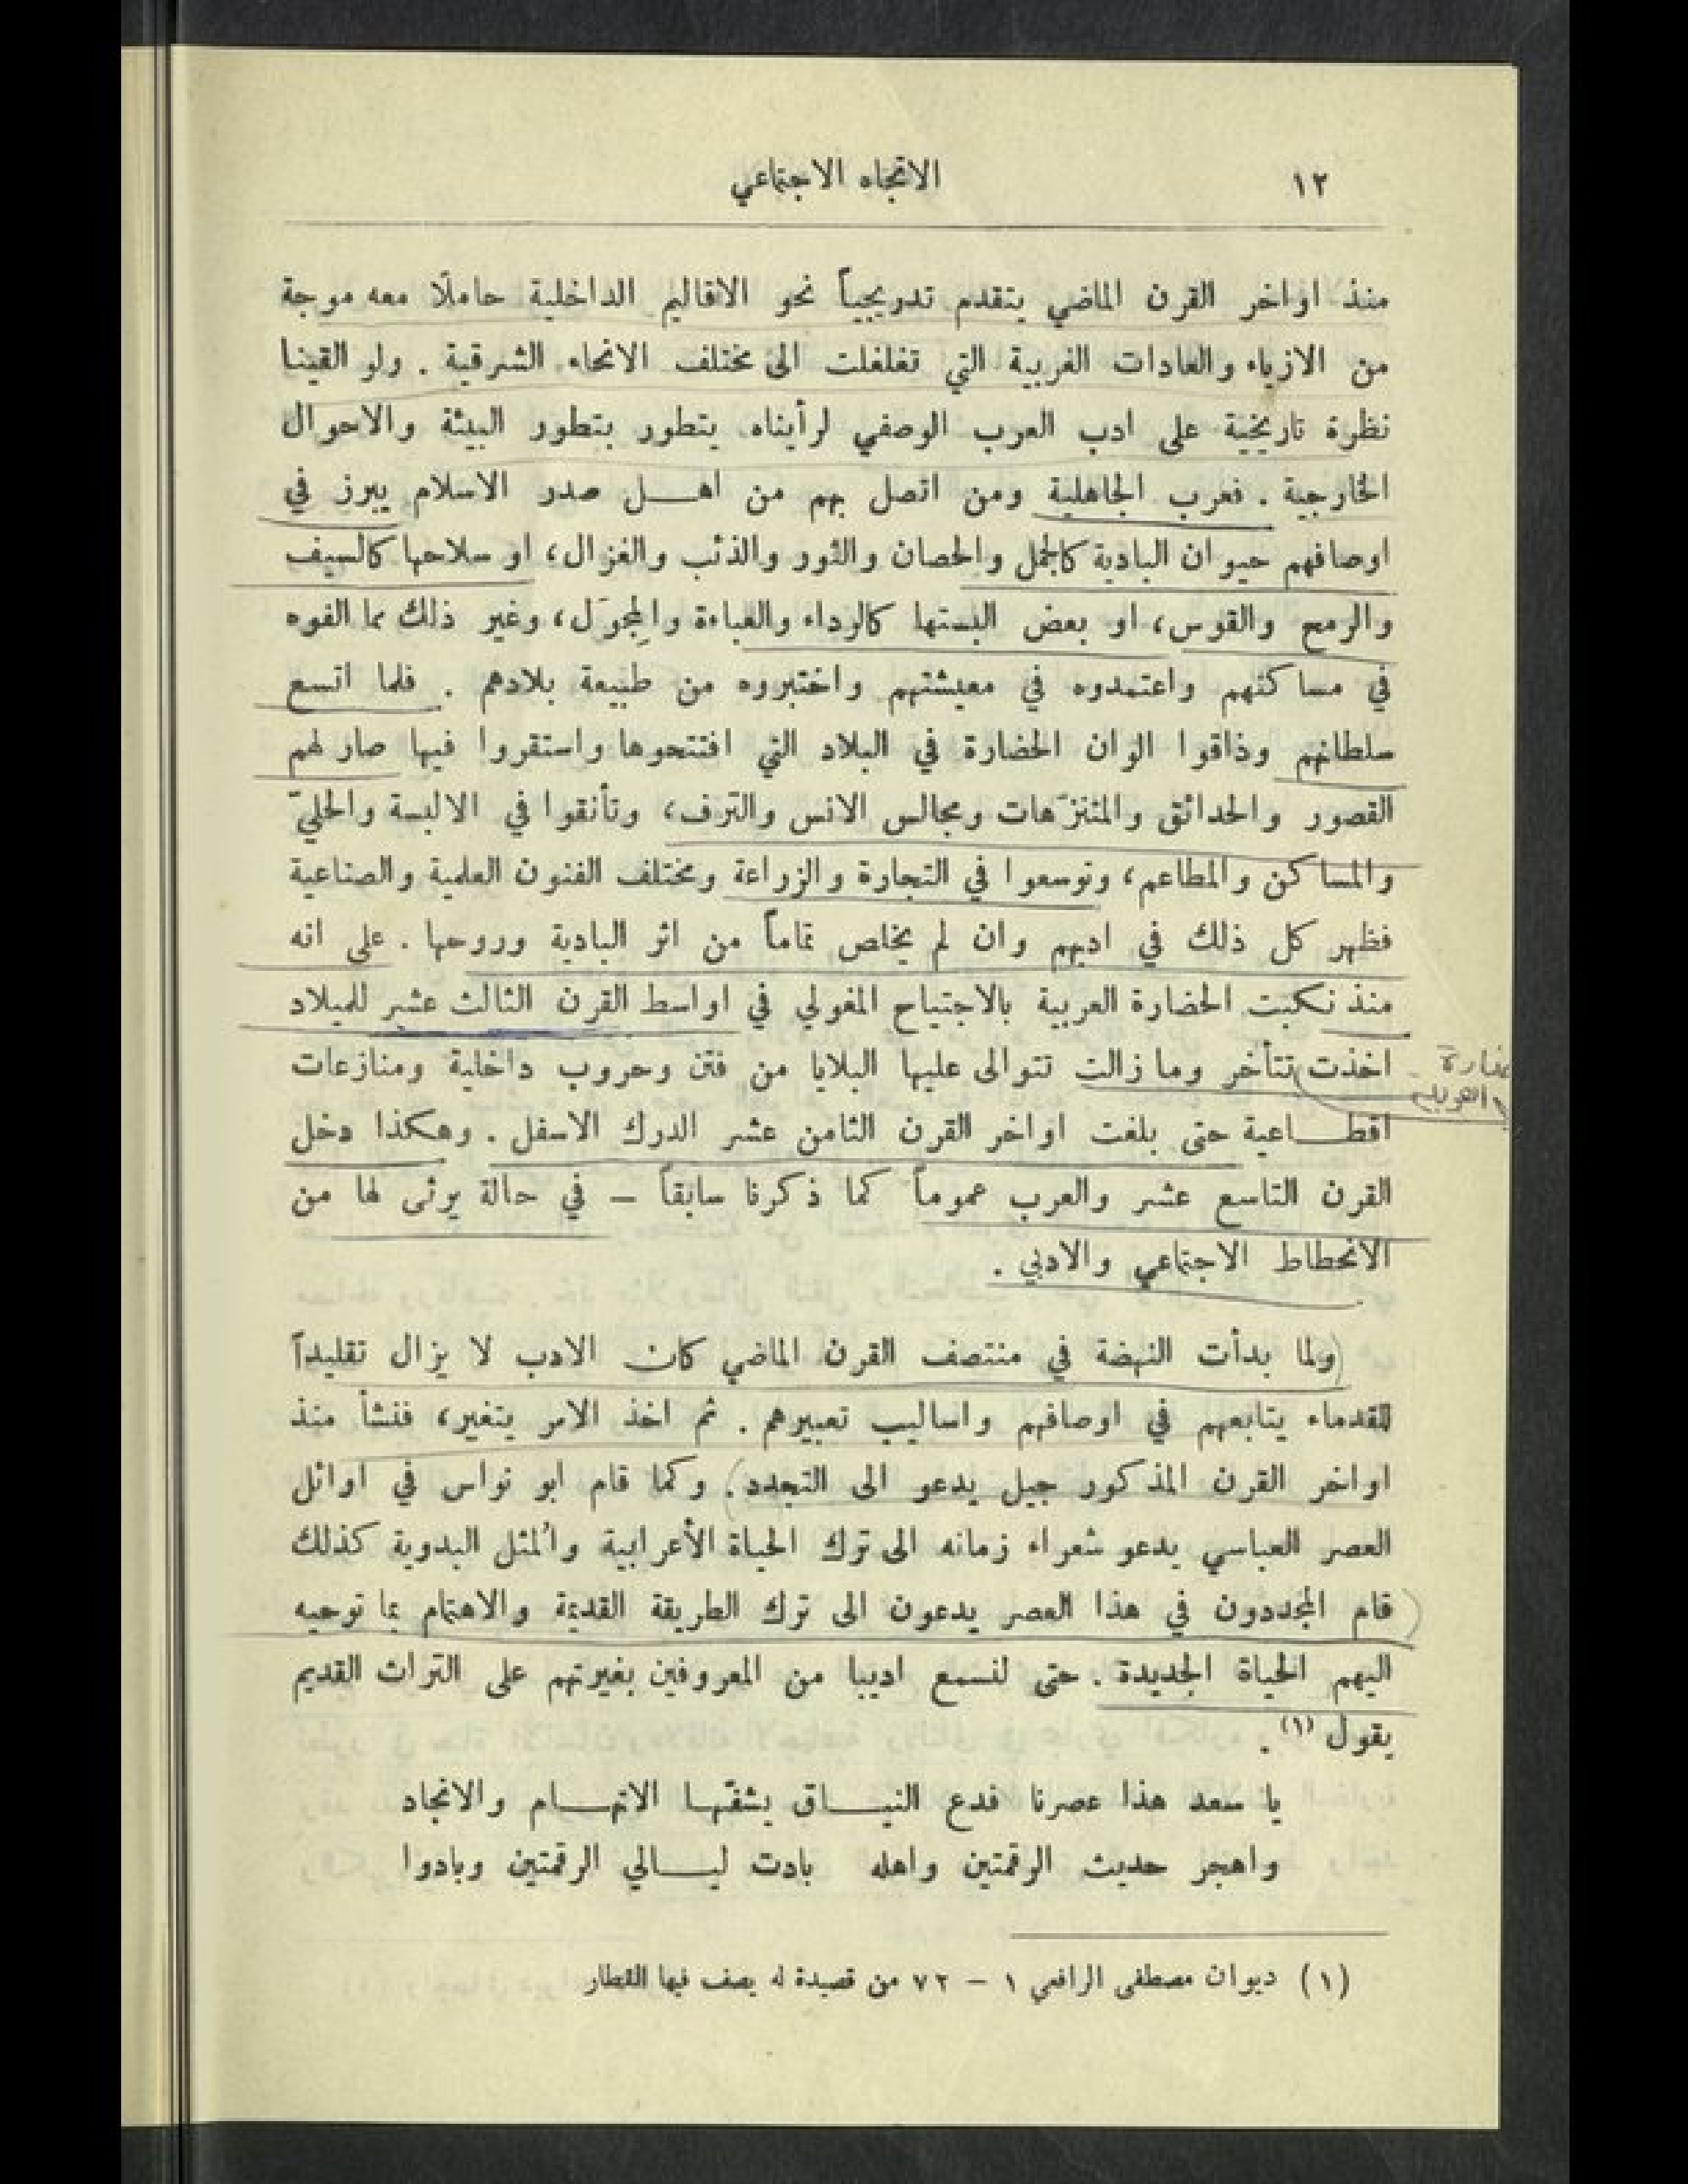 ١٢ الاتجاه الاجتماعي
منذ اواخر القرن الماضي يتقدم تدريجياً نحو الاقاليم الداخلية حاملًا معه موجة
من الازياء والعادات الغربية التي تغلغلت الى مختلف الانحاء الشرقية . ولو القينا
نظرة تاريخية على ادب العرب الوصفي لرأيناه يتطور بتطور البيئة والاحوال
الخارجية . فعرب الجاهلية ومن اتصل بهم من اهـل صدر الاسلام يبرز في
اوصافهم حيوان البادية كالجمل والحصان والثور والذئب والغزال، او سلاحها كالسيف
والرمح والقوس، او بعض البستها كالرداء والعباءة والمِجوَل، وغير ذلك مما الفوه
في مساكنهم واعتمدوه في معيشتهم واختبروه من طبيعة بلادهم . فلما اتسع
سلطانهم وذاقوا الوان الحضارة في البلاد التي افتتحوها واستقروا فيها صار لهم
القصور والحدائق والمتنزَهات ومجالس الانس والترف، وتأنقوا في الالبسة والحليّ
والمساكن والمطاعم، وتوسعوا في التجارة والزراعة ومختلف الفنون العلمية والصناعية
فظهر كل ذلك في ادبهم وان لم يخلص تماماً من اثر البادية وروحها . على انه
منذ نكبت الحضارة العربية بالاجتياح المغولي في اواسط القرن الثالث عشر للميلاد
اخذت تتأخر وما زالت تتوالى عليها البلايا من فتن وحروب داخلية ومنازعات
اقطـاعية حتى بلغت اواخر القرن الثامن عشر الدرك الاسفل . وهكذا دخل
القرن التاسع عشر والعرب عموماً كما ذكرنا سابقاً – في حالة يرثى لها من
الانحطاط الاجتماعي والادبي .
ولما بدأت النهضة في منتصف القرن الماضي كان الادب لا يزال تقليداً
للقدماء يتابعهم في اوصافهم واساليب تعبيرهم . ثم اخذ الامر يتغير، فنشأ منذ
اواخر القرن المذكور جيل يدعو الى التجدد . وكما قام ابو نواس في اوائل
العصر العباسي يدعو شعراء زمانه الى ترك الحياة الأعرابية والمُثل البدوية كذلك
قام المجددون في هذا العصر يدعون الى ترك الطريقة القديمة والاهتمام بما توحيه
اليهم الحياة الجديدة . حتى لنسمع اديبا من المعروفين بغيرتهم على التراث القديم
يقول (١) .
يا سعد هذا عصرنا فدع النيـاق يشفّهـا الاتهـام والانجاد
واهجر حديث الرقمتين واهله بادت ليـالي الرقمتين وبادوا
(١) ديوان مصطفى الرافعي ١ – ٧٢ من قصيدة له يصف فيها القطار